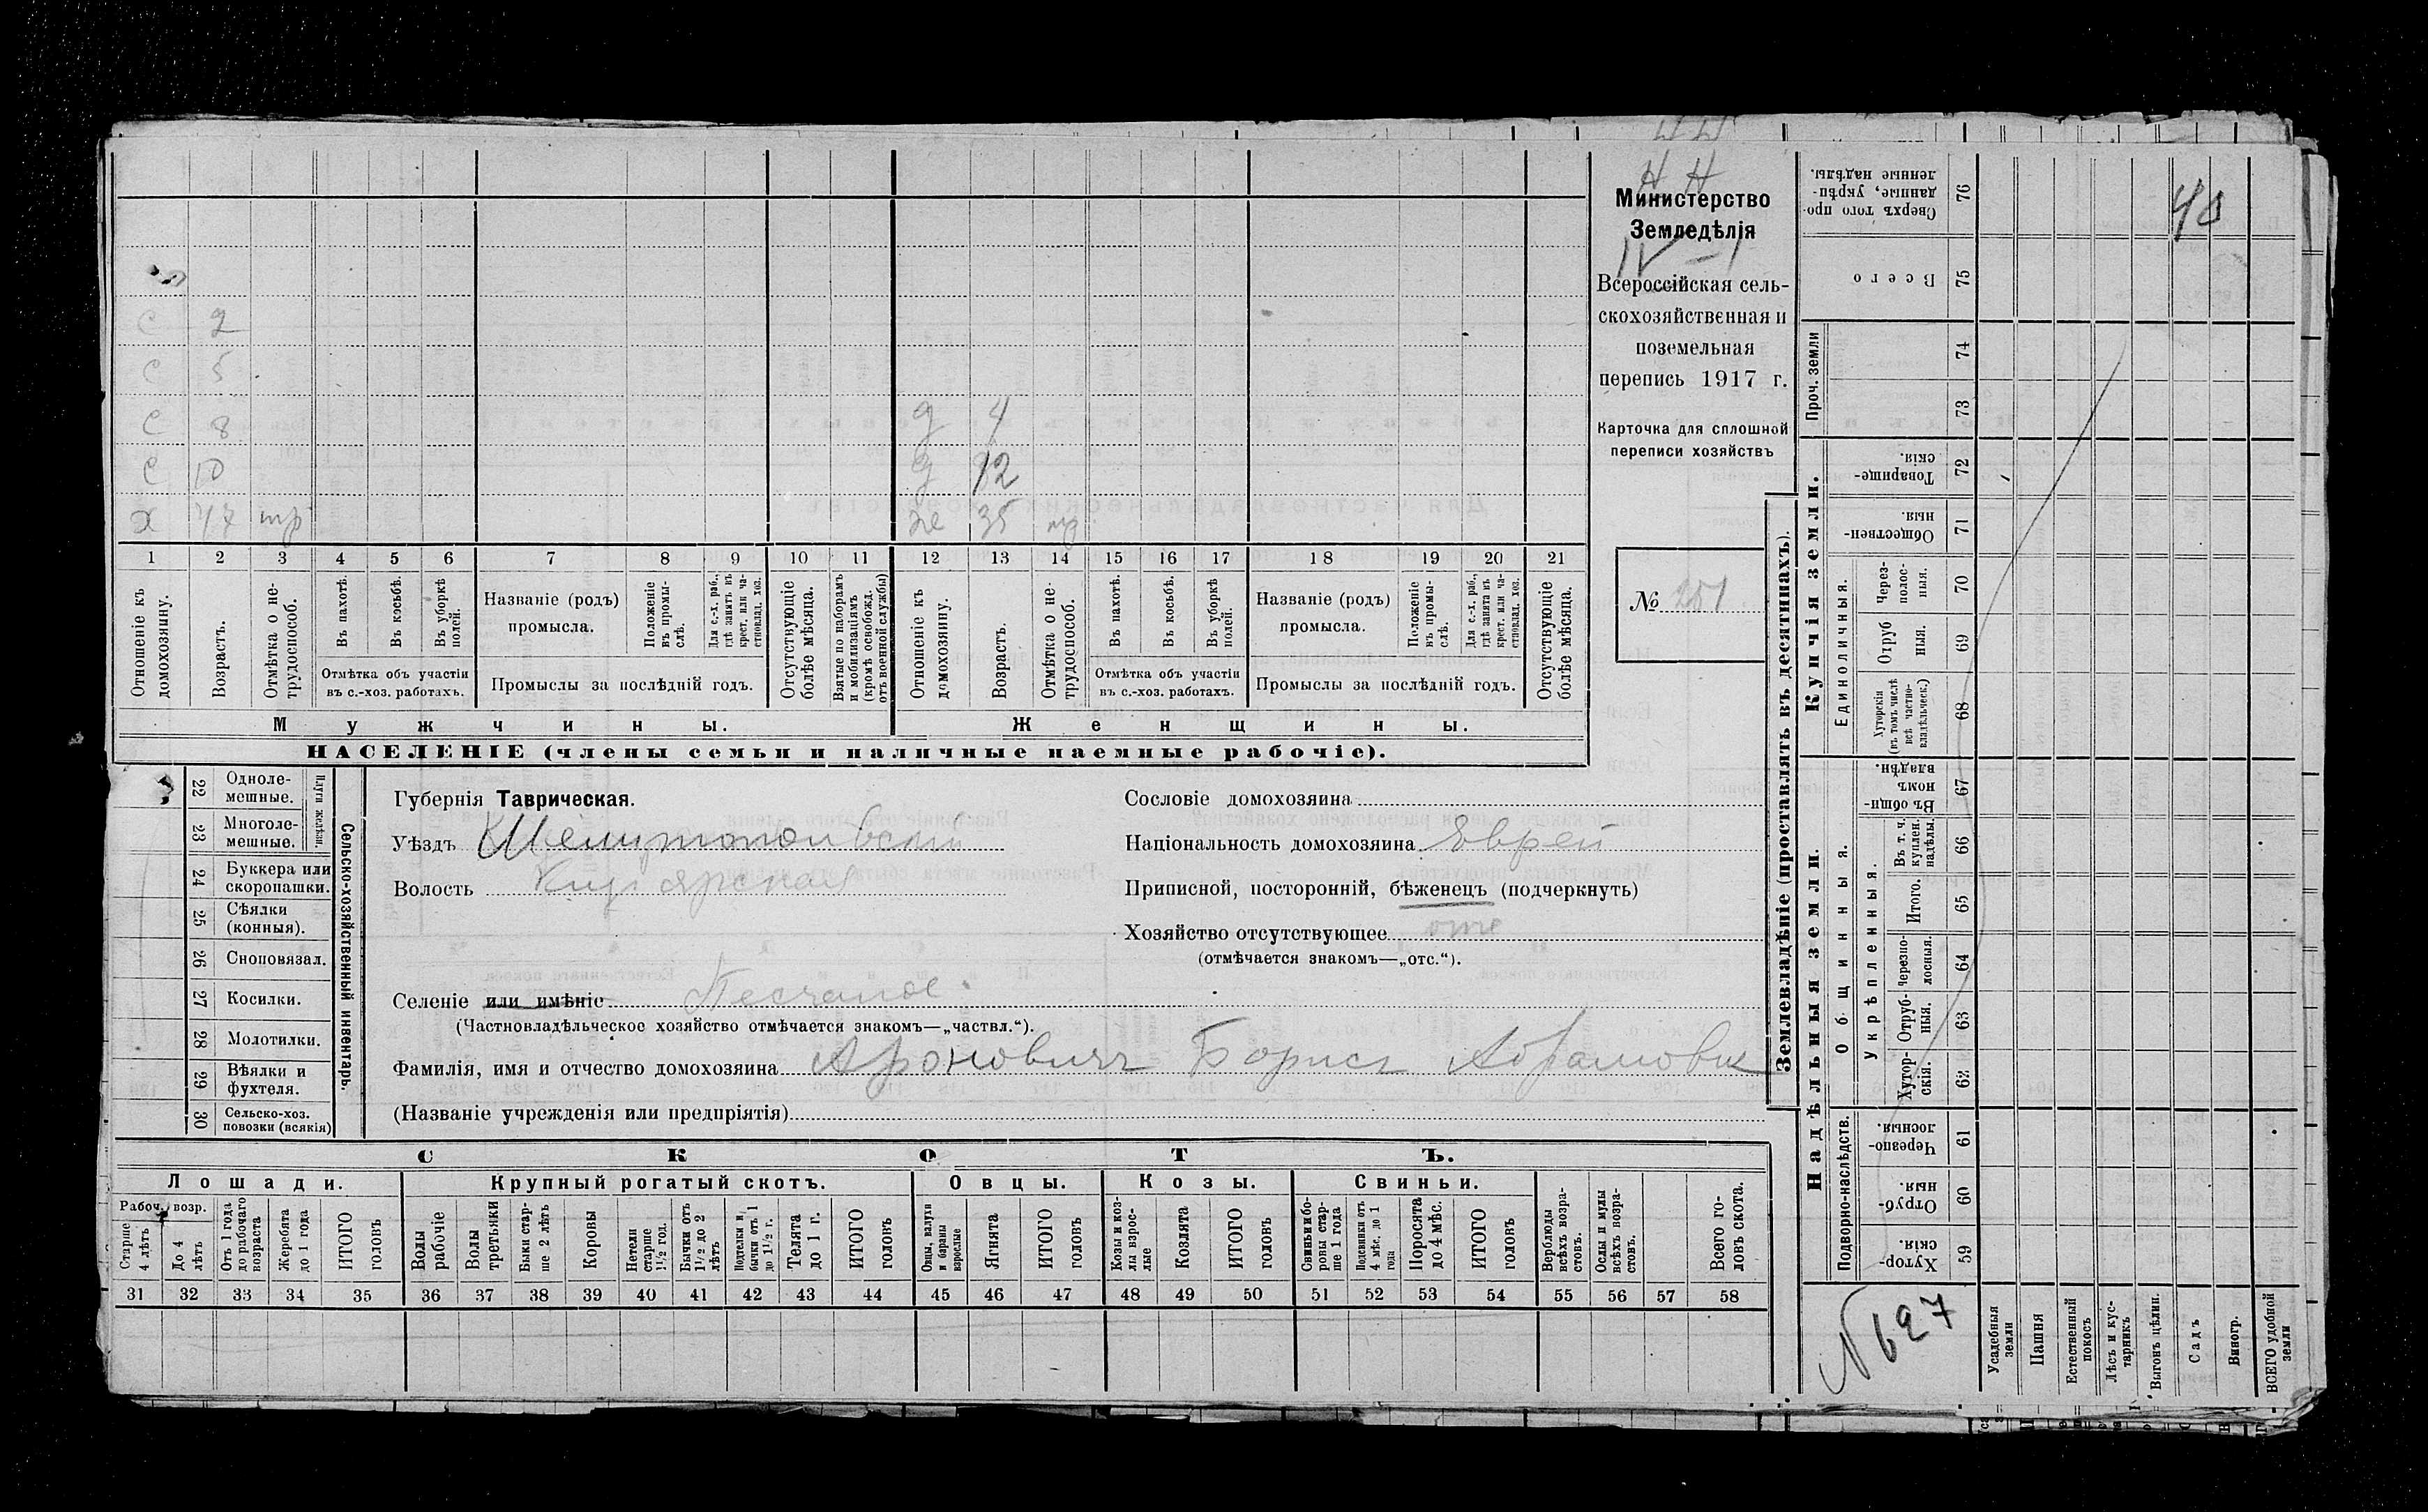 Н Н
Министерство
Земледѣлія
IV – 1
Всероссійская сель-
скохозяйственная и
поземельная
перепись 1917 г.
Карточка для сплошной
переписи хозяйствъ
№ 251
с 2
с 5
с 8 д 4
с 10 д 12
х 47 тр же 35 тр
1 2 3 4 5 6 7 8 9 10 11 12 13 14 15 16 17 18 19 20 21
Отношеніе къ домохозяину.
Возрастъ.
Отмѣтка о не-трудоспособ.
Въ пахотѣ.
Въ косьбѣ.
Въ уборкѣ полей.
Отмѣтка объ участіи
въ с.-хоз. работахъ.
Названіе (родъ)
промысла.
Положеніе въ промы-слѣ.
Для с.-х. раб., гдѣ занятъ въ крест. или ча-стновлад. хоз.
Промыслы за послѣдній годъ.
Отсутствующіе болѣе мѣсяца.
Взятые по наборамъ и мобилизаціямъ (кромѣ освобожд. отъ военной службы)
Отношеніе къ домохозяину.
Возрастъ.
Отмѣтка о не-трудоспособ.
Въ пахотѣ.
Въ косьбѣ.
Въ уборкѣ полей.
Отмѣтка объ участіи
въ с.-хоз. работахъ.
Названіе (родъ)
промысла.
Положеніе въ промы-слѣ.
Для с.-х. раб., гдѣ занята въ крест. или ча-стновлад. хоз.
Промыслы за послѣдній годъ.
Отсутствующіе болѣе мѣсяца.
Мужчины. Женщины.
НАСЕЛЕНІЕ (члены семьи и наличные наемные рабочіе).
Сельско-хозяйственный инвентарь.
Плуги желѣзн.
22 Одноле-мешные.
23 Многоле-мешные.
24 Буккера или скоропашки.
25 Сѣялки (конныя).
26 Сноповязал.
27 Косилки.
28 Молотилки.
29 Вѣялки и фухтеля.
30 Сельско-хоз. повозки (всякія)
Губернія Таврическая.
Уѣздъ Мелитопольскій
Волость
Селеніе или имѣніе Песчаное.
(Частновладѣльческое хозяйство отмѣчается знакомъ—„частвл.“).
Фамилія, имя и отчество домохозяина Ароновичъ Борисъ Абрамович
(Названіе учрежденія или предпріятія)
Сословіе домохозяина
Національность домохозяина Еврей
Приписной, посторонній, бѣженецъ (подчеркнуть)
Хозяйство отсутствующее отс
(отмѣчается знакомъ—„отс.“).
СКОТЪ.
Лошади. Крупный рогатый скотъ. Овцы. Козы. Свиньи.
Рабоч. возр.
Старше 4 лѣтъ
До 4 лѣтъ
Отъ 1 года до рабочаго возраста
Жеребята до 1 года
ИТОГО головъ
Волы рабочіе
Волы третьяки
Быки стар-ше 2 лѣтъ
Коровы
Нетели старше 1½ год.
Бычки отъ 1½ до 2 лѣтъ
Подтелки и бычки отъ 1 до 1½ г.
Телята до 1 г.
ИТОГО головъ
Овцы, валухи и бараны взрослые
Ягнята
ИТОГО головъ
Козы и коз-лы взрос-лые
Козлята
ИТОГО головъ
Свиньи и бо-ровы стар-ше 1 года
Подсвинки отъ 4 мѣс. до 1 года
Поросята до 4 мѣс.
ИТОГО головъ
Верблюды всѣхъ возра-стовъ.
Ослы и мулы всѣхъ возра-стовъ.
Всего го-ловъ скота.
31 32 33 34 35 36 37 38 39 40 41 42 43 44 45 46 47 48 49 50 51 52 53 54 55 56 57 58
Землевладѣніе (проставлять въ десятинахъ).
Купчія земли.
Надѣльныя земли.
76 Сверхъ того про-данные, укрѣп-ленные надѣлы.
75 Всего
Проч. земли
74
73
72 Товарище-скія.
71 Обществен-ныя.
Единоличныя.
70 Через-полос-ныя.
69 Отруб ныя.
68 Хуторскія (въ томъ числѣ всѣ частно-владѣльческ.)
67 Въ общи-номъ владѣн.
Общинныя.
Укрѣпленныя.
66 Въ т. ч. куплен. надѣлы.
65 Итого.
64 Черезпо-лосныя.
63 Отруб-ныя.
62 Хутор-скія.
Подворно-наслѣдств.
61 Черезпо-лосныя.
60 Отруб-ныя.
59 Хутор-скія.
40
N 627
Усадебныя земли
Пашня
Естественный покосъ
Лѣсъ и кус-тарникъ
Выгонъ цѣлин.
Садъ
Виногр.
ВСЕГО удобной земли